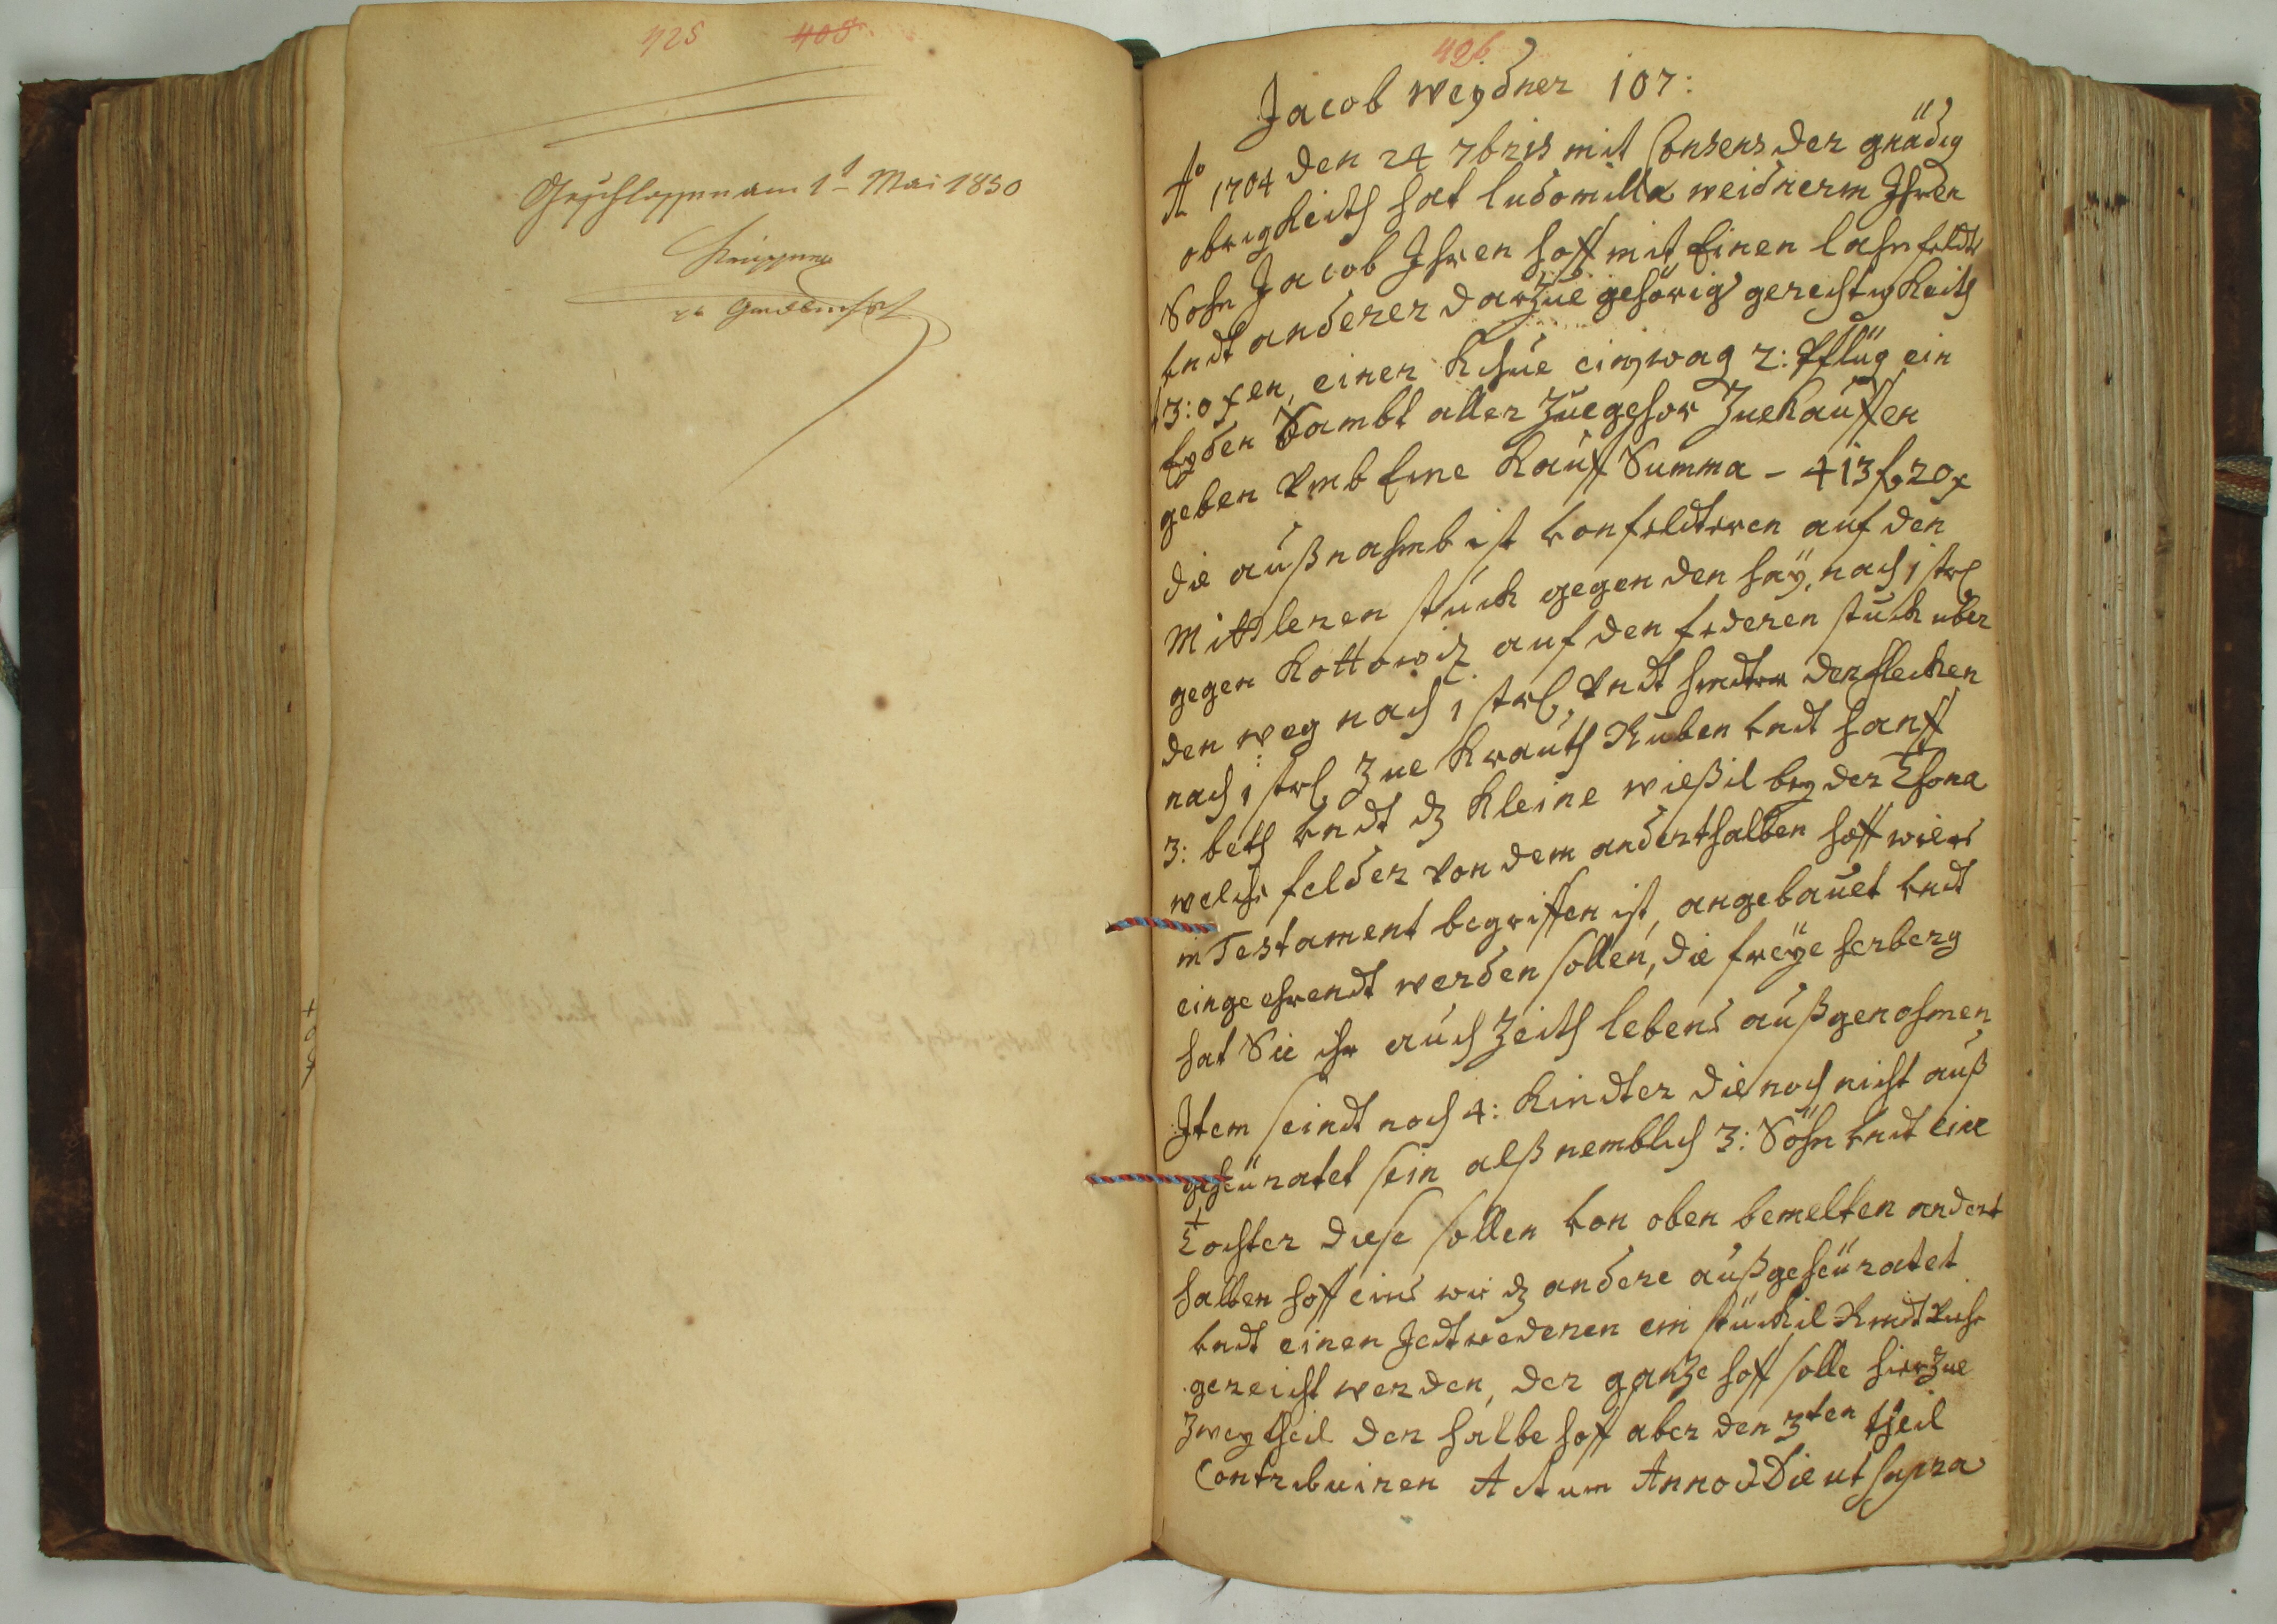 425 408
Geschlossen am 1t Mai 1850
426
Jacob weydner 107:
Ao 1704 den 24 7bris mit Consens der gnädig
obrigkeith hat ludomilla weidnerin Ihren
Sohn Jacob Ihren hoff mit Einen lahn feldt
vndt anderer darzue gehörig gerechtigkeith
3: oxen, einer Khue ein wag 2: Pflüg ein
Eyden Sambt aller Zuegehör Zuekauffen
geben vmb Eine Kauff Summa - 413 f 20 x
die außnahmb ist von feldtern auf den
Mittleren stuckh gegen den haÿ, nach 1 strl
gegen Kottowiz auf den federen stuckh uber
den weg nach 1 strl, vndt hindter den flecken
nach 1 strl, Zue Krauth Ruben vndt hanff
3: beth vndt dz Kleine wießil bey der Thona
welche felder von dem anderthalben hoff wie es
in Testament begriffen ist, angebauet vndt
eingeehrendt werden sollen, die freÿe herberg
hat Sie ihr auch Zeith lebens außgenohmen,
Item seindt noch 4: Kindter die noch nicht auß
geheüratet sein alß nemblich 3: Söhn vndt eine
Tochter diese sollen von oben bemelten andert
halben hoff eins wie dz andere außgeheüratet
vndt einen Jedtwederen ein stückil Rindt viehe
gereicht werden, der ganze hoff solle hierzue
Zwey theil der halbe hoff aber den 3ten theil
Contribuiren Actum Anno & Die ut supra